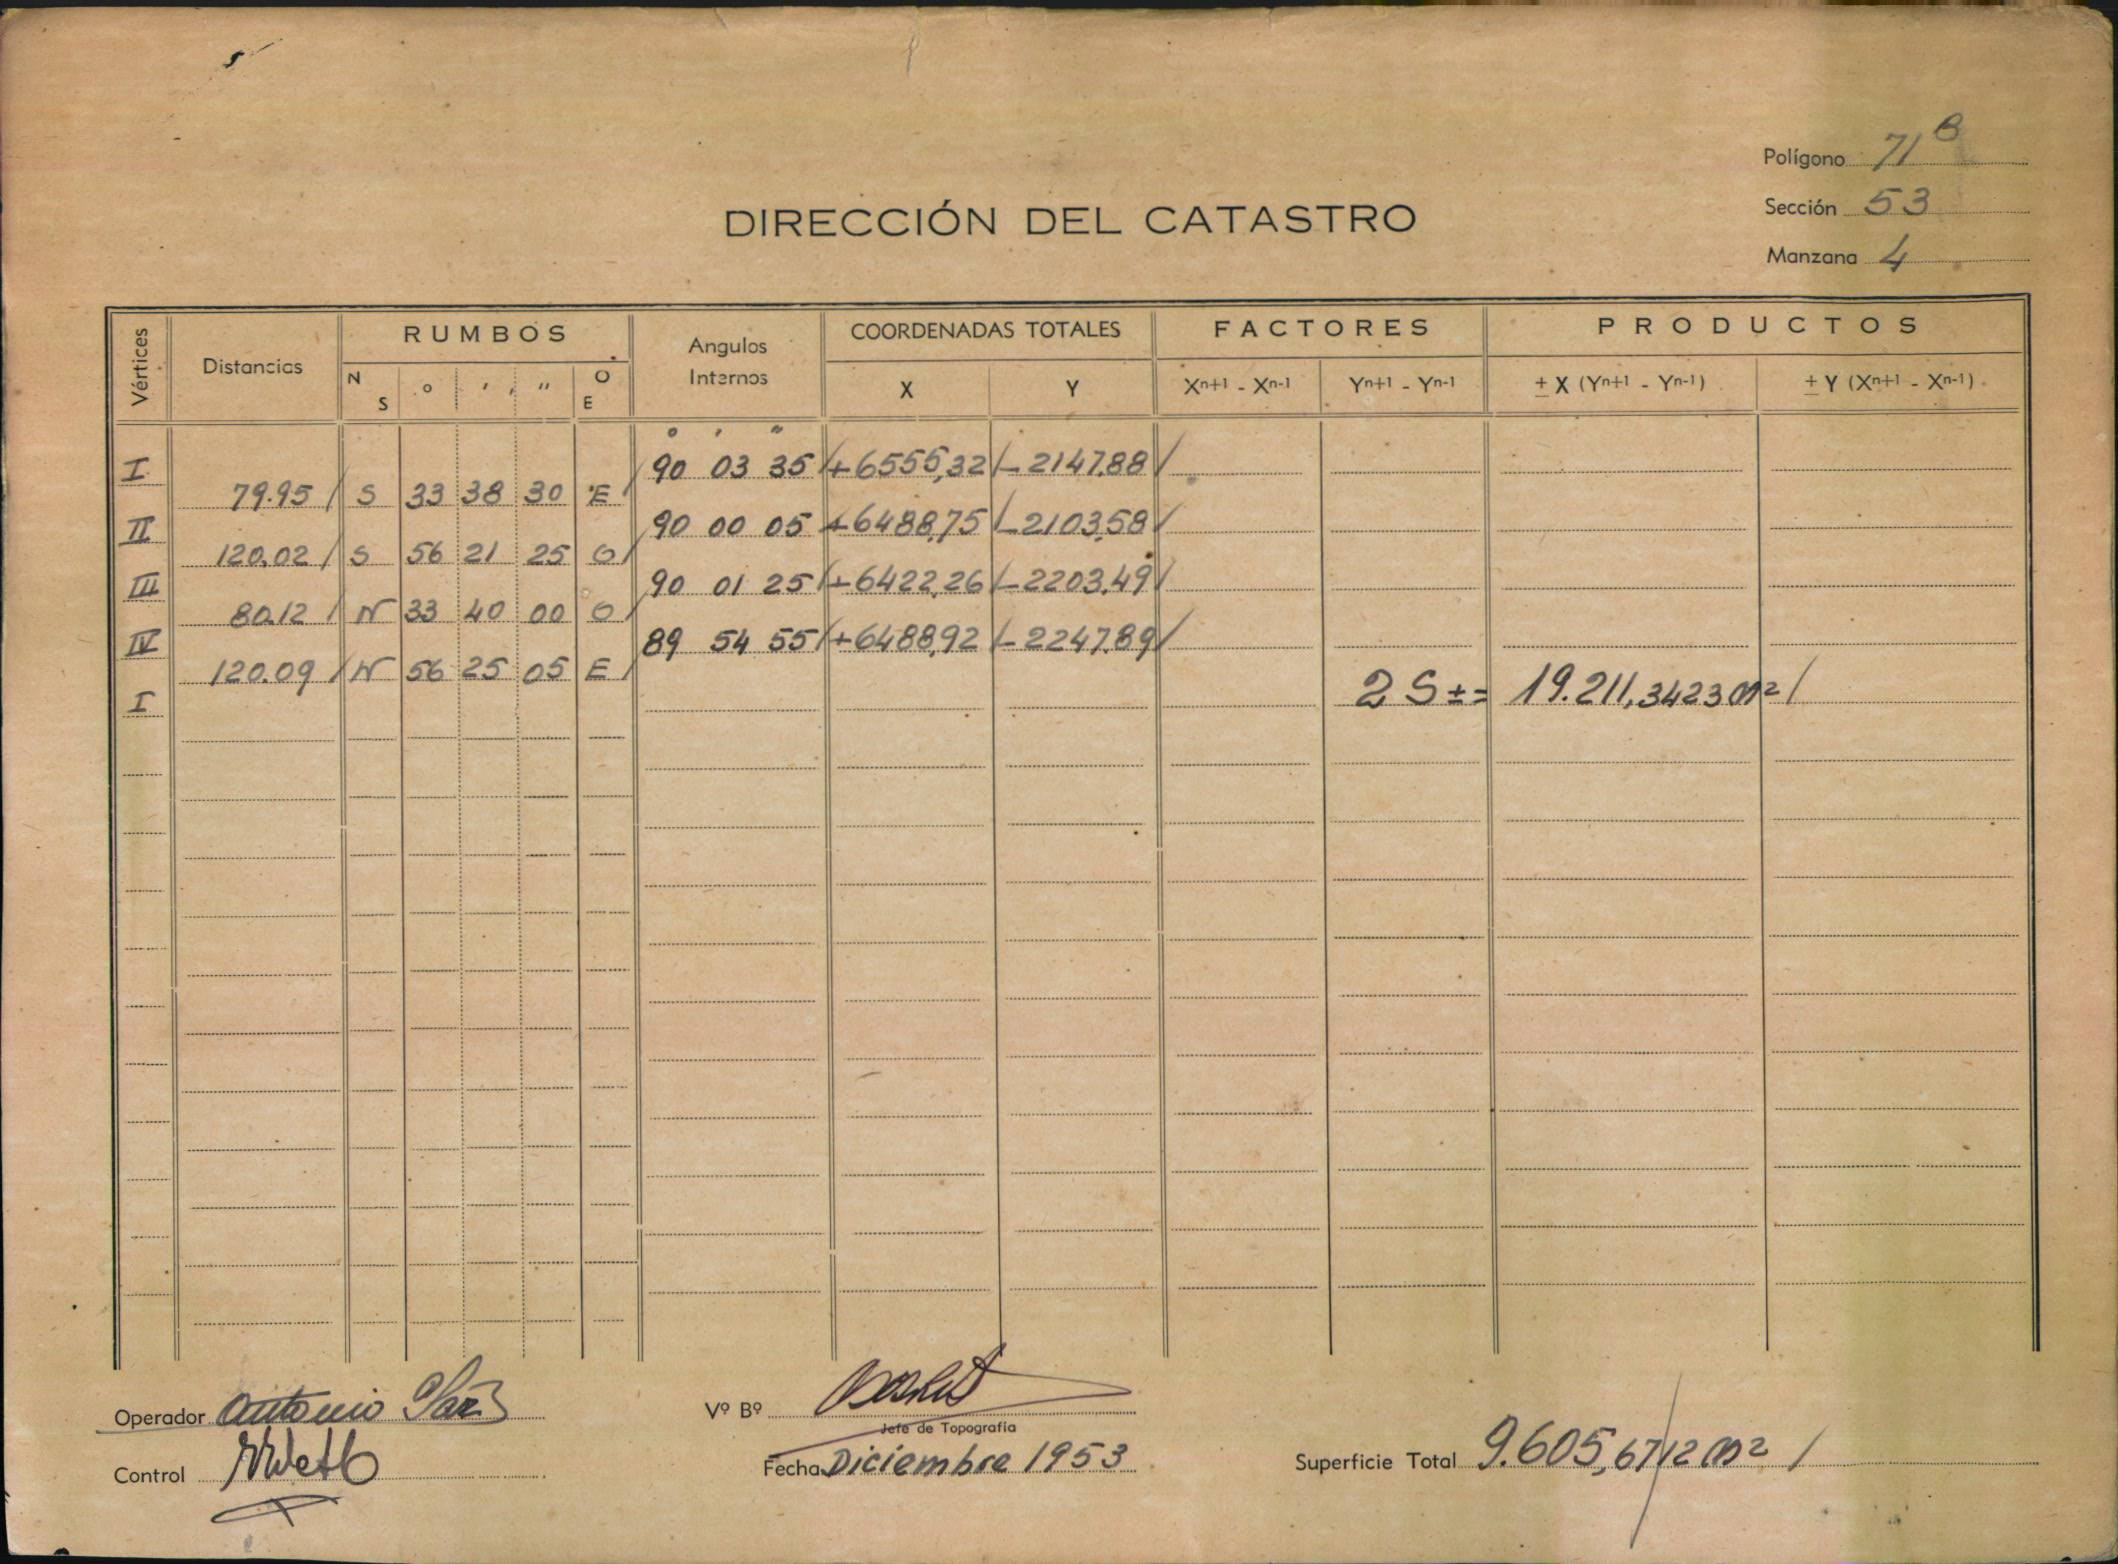 Polígono 71 B
Sección 53
Manzana 4
DIRECCIÓN DEL CATASTRO
Vértices Distancias RUMBOS Angulos Internos COORDENADAS TOTALES FACTORES PRODUCTOS
N S ° ' " O E X Y Xn+1 - Xn-1 Yn+1 - Yn-1 ± X (Yn+1 - Yn-1) ± Y (Xn+1 - Xn-1)
° ' "
I 90 03 35 / +6555,32 / -2147,88 /
79.95 / S 33 38 30 E /
II 90 00 05 +6488,75 / -2103,58 /
120.02 / S 56 21 25 O /
III 90 01 25 / +6422,26 / -2203,49 /
80.12 / N 33 40 00 O /
IV 89 54 55 / +6488,92 / -2247,89 /
120.09 / N 56 25 05 E /
I 2 S ± = 19.211,3423 m2 /
Operador Antonio
Vº Bº
Jefe de Topografía
Control
Fecha Diciembre 1953
Superficie Total 9.605,6712 m2 /